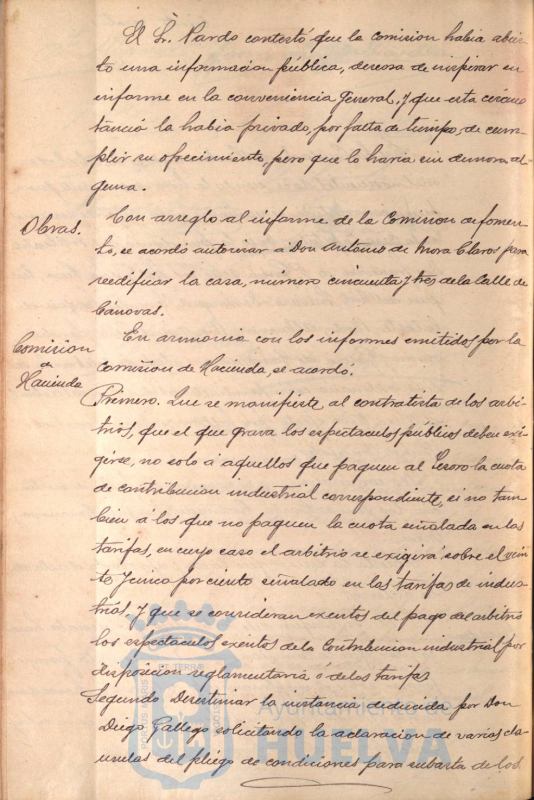 El Sr. Pardo contestó que la comision habia abier
to una informacion pública, deseosa de inspirar su
informe en la conveniencia general, y que esta circuns
tancia la habia privado, por falta de tiempo, de cum
plir su ofrecimiento, pero que lo haria sin demora al
guna.
Obras.
Con arreglo al informe de la Comision de fomen
to, se acordó autorizar á Don Antonio de Mora Claros para
reedificar la casa, número cincuenta y tres de la Calle de
Cánovas.
Comision
de
Hacienda
En armonia con los informes emitidos por la
Comision de Hacienda, se acordó.
Primero. Que se manifieste al contratista de los arbi
trios, que el que grava los espectaculos públicos deben exi
girse, no solo á aquellos que paguen al Tesoro la cuota
de contribucion industrial correspondiente, si no tam
bien á los que no paguen la cuota señalada en las
tarifas, en cuyo caso el arbitrio se exigirá sobre el vein
te y cinco por ciento señalado en las tarifas de indus
trias. Y que se consideran exentos del pago del arbitrio
los espectaculos exentos de la Contribucion industrial por
disposicion reglamentaria ó de las tarifas
Segundo Desestimar la instancia deducida por Don
Diego Gallego solicitando la aclaracion de varias cla
usulas del pliego de condiciones para subasta de los
Ayuntamiento de
HUELVA